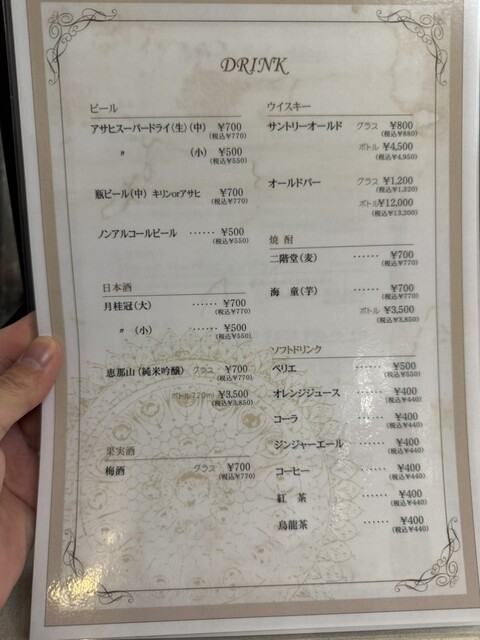 DRINK
ビール
アサヒスーパードライ(生)(中) ¥700
(税込¥770)
〃 (小) ¥500
(税込¥550)
瓶ビール(中) キリンorアサヒ ¥700
(税込¥770)
ノンアルコールビール …… ¥500
(税込¥550)
日本酒
月桂冠(大) …… ¥700
(税込¥770)
〃 (小) …… ¥500
(税込¥550)
恵那山(純米吟醸) グラス ¥700
(税込¥770)
ボトル(720ml) ¥3,500
(税込¥3,850)
果実酒
梅酒 グラス ¥700
(税込¥770)
ウイスキー
サントリーオールド グラス ¥800
(税込¥880)
ボトル ¥4,500
(税込¥4,950)
オールドパー グラス ¥1,200
(税込¥1,320)
ボトル ¥12,000
(税込¥13,200)
焼酎
二階堂(麦) …… ¥700
(税込¥770)
海童(芋) …… ¥700
(税込¥770)
ボトル ¥3,500
(税込¥3,850)
ソフトドリンク
ペリエ …… ¥500
(税込¥550)
オレンジジュース …… ¥400
(税込¥440)
コーラ …… ¥400
(税込¥440)
ジンジャーエール …… ¥400
(税込¥440)
コーヒー …… ¥400
(税込¥440)
紅茶 …… ¥400
(税込¥440)
烏龍茶 …… ¥400
(税込¥440)